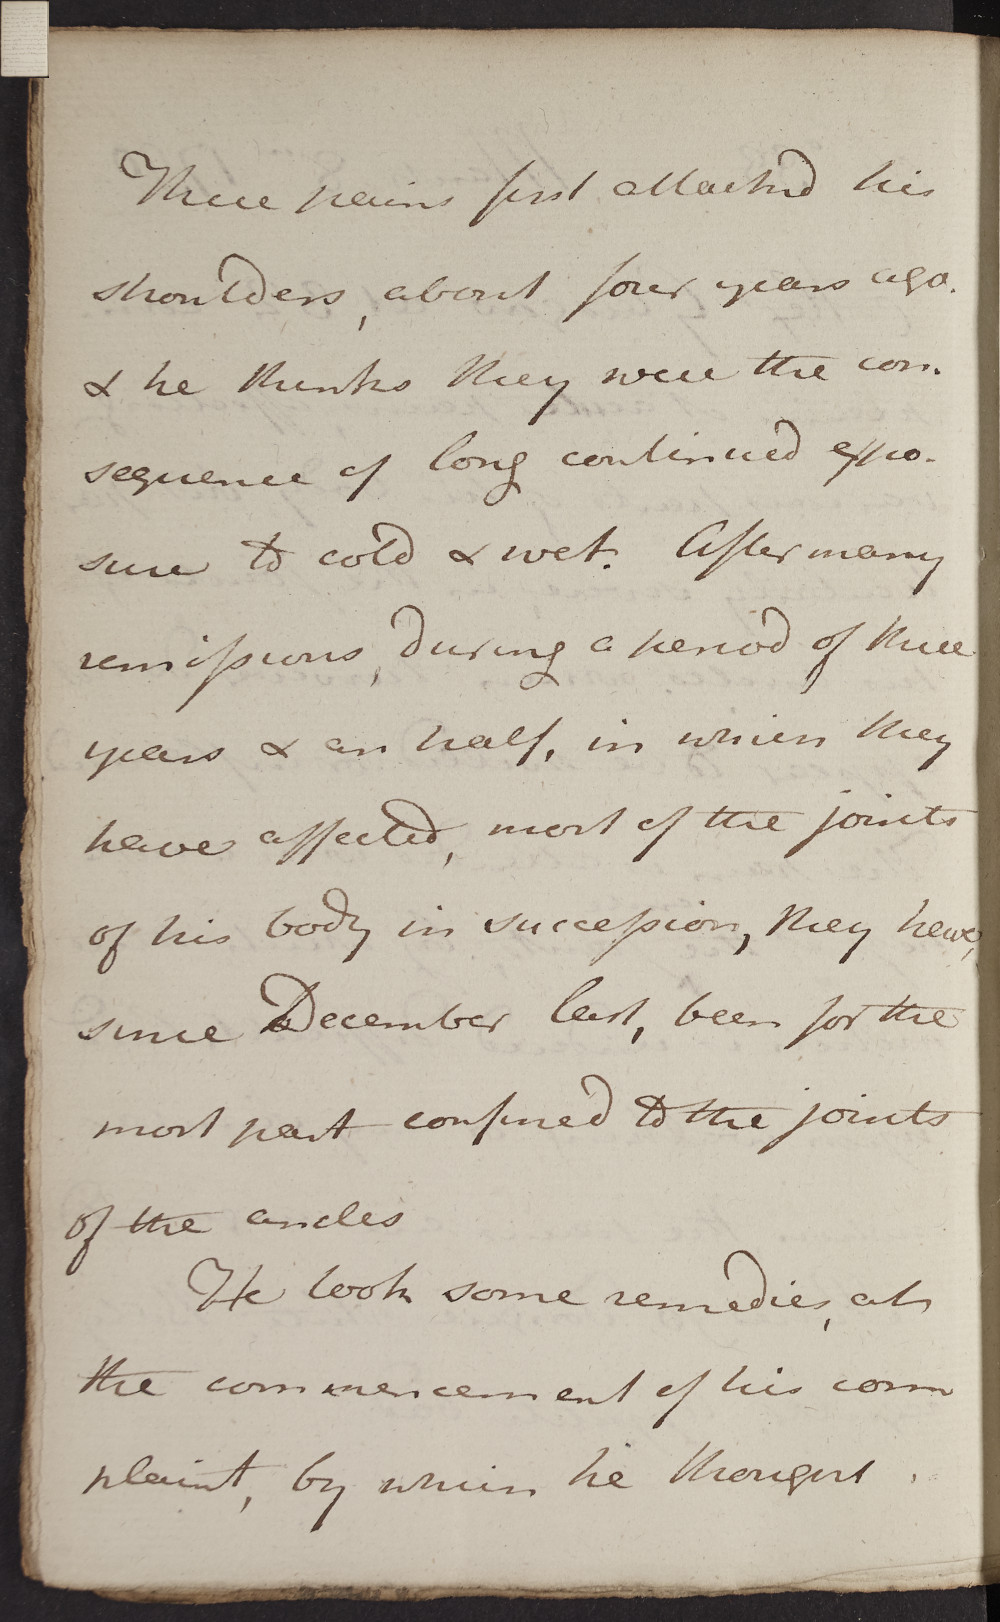 These pains first attacked his
shoulders, about four years ago.
& he thinks they were the con-
sequence of long continued expo-
sure to cold & wet. After many
remissions, during a period of three
years & an half, in which they
have affected, most of the joints
of his body in succession, they have,
since December last, been for the
most part confined to the joints
of the ancles
He took some remedies, at
the commencement of his com
plaint, by which he thought